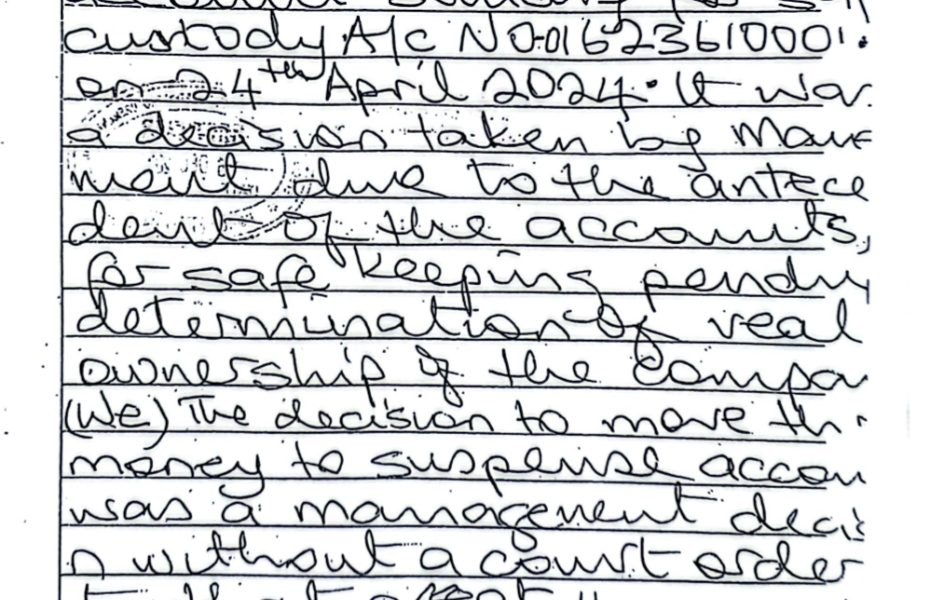 custody A/c NO-0162361000 1.
on 24th April 2024. It was
a decision taken by Mana
ment due to the antece
dent of the accounts,
for safe keeping pendin
determination of real
ownership of the Compa
(We) The decision to move th
money to suspense accou
was a management decis
n without a court order